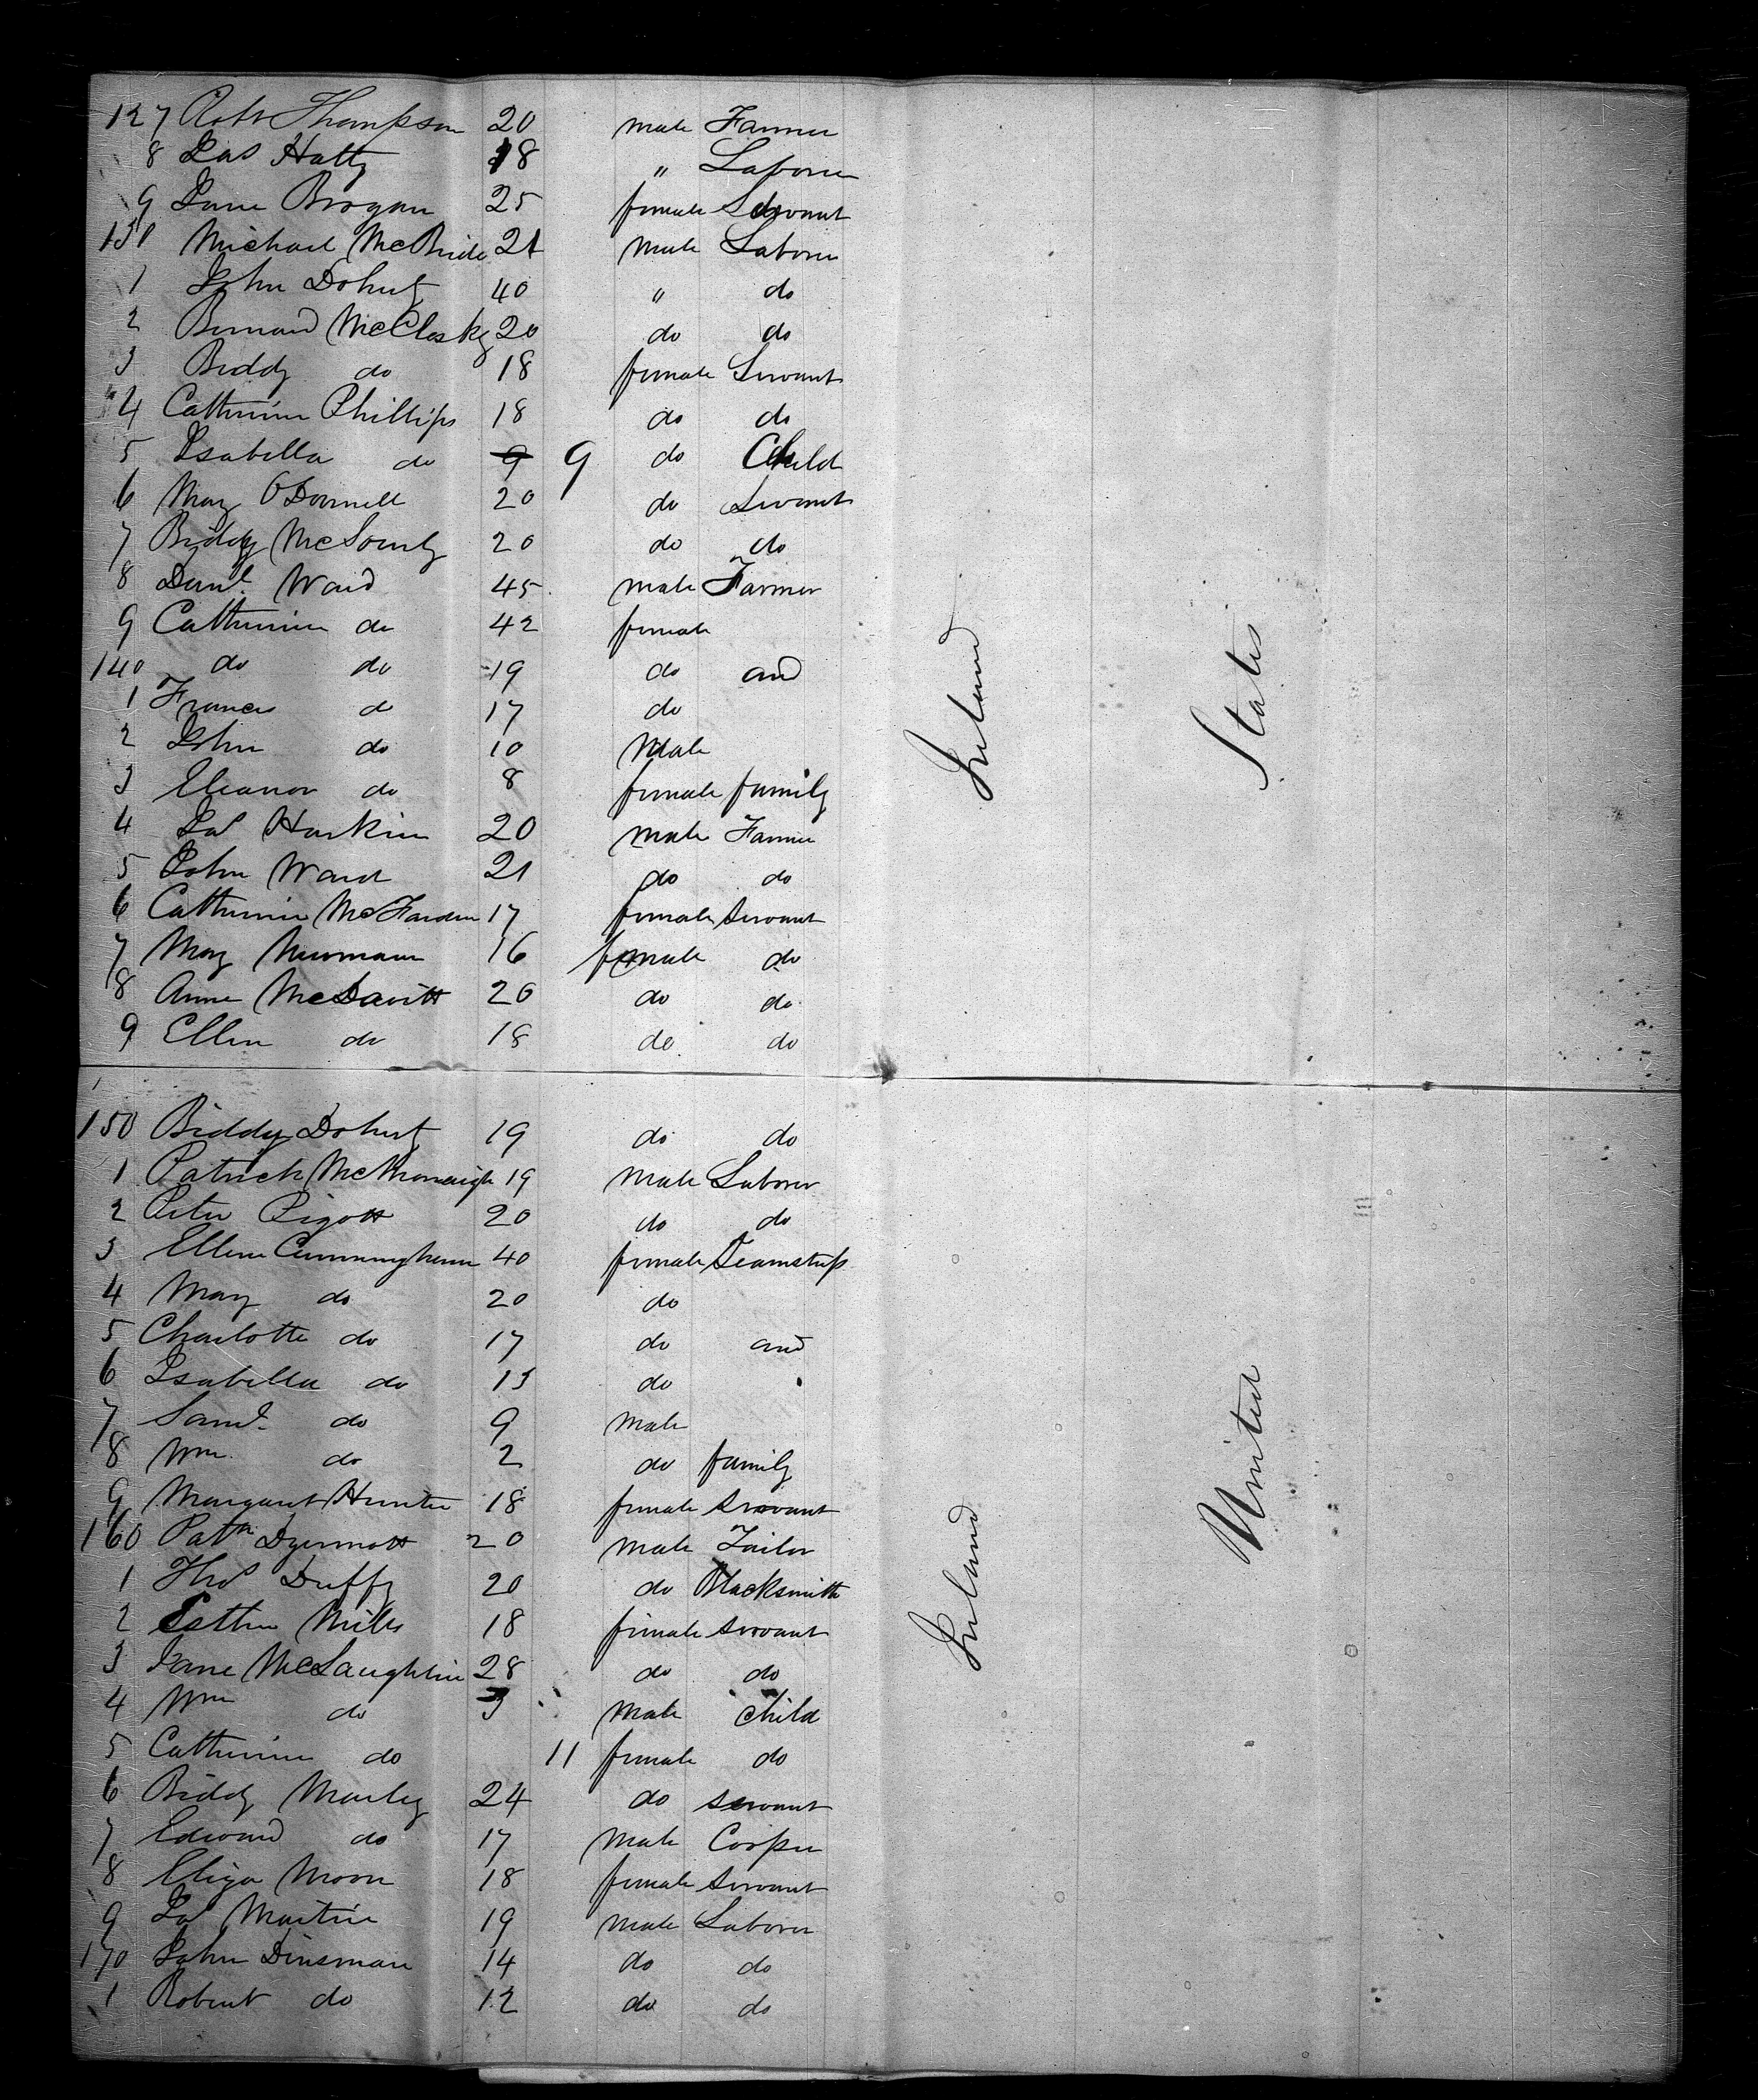 127 Robt Thompson 20 male Farmer
8 Jas Hatty 18 " Laborer
9 Jane Brogan 25 female Servant
130 Michael McBride 21 male Laborer
1 John Dohert 40 " do
2 Bernard McClosky 20 do do
3 Biddy do 18 female Servant
4 Catherine Phillips 18 do do
5 Isabella do 9 9 do Child
6 Mary O'Donnell 20 do Servant
7 Biddy McSourly 20 do do
8 Danl. Ward 45 male Farmer
9 Catherine do 42 female
140 do do 19 do and
1 Frances do 17 do
2 John do 10 Male
3 Eleanor do 8 female family
4 Jas Harkin 20 male Farmer
5 John Ward 21 do do
6 Catherine McFarden 17 female servant
7 Mary Newmann 16 female do
8 Anne McDavitt 20 do do
9 Ellen do 18 do do
150 Biddy Dohert 19 do do
1 Patrick 19 male Laborer
2 Peter Pigott 20 do do
3 Ellen Cunningham 40 female Seamstress
4 Mary do 20 do
5 Charlotte do 17 do and
6 Isabella do 13 do
7 Saml. do 9 male
8 Wm. do 2 do family
9 Margaret Hunter 18 female servant
160 Patk Dyermott 20 male Tailor
1 Thos Duffy 20 do Blacksmith
2 Esther Mills 18 female servant
3 Jane McLaughlin 28 do do
4 Wm do 3 male child
5 Catherine do 11 female do
6 Biddy Marley 24 do servant
7 Edward do 17 male Cooper
8 Eliza Moore 18 female servant
9 Jas Martin 19 male Laborer
170 John Dinsman 14 do do
1 Robert do 12 do do
Ireland
Ireland
United States